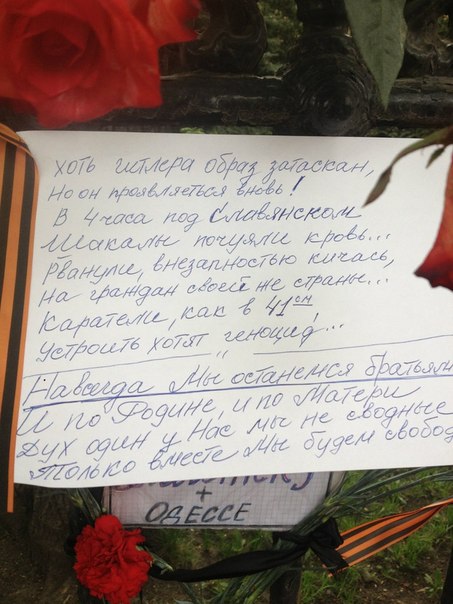 Хоть Гитлера образ затаскан,
Но он проявляеться вновь!
В 4 часа под Славянском
Шакалы почуяли кровь...
Рванули, внезапностью кичась,
На граждан своей же страны...
Каратели, как в 41ом,
Устроить хотят геноцид...
Навсегда мы останемся братьями
И по Родине, и по Матери
Дух один у Нас мы не сводные
Только вместе Мы будем свобод
+
ОДЕССЕ